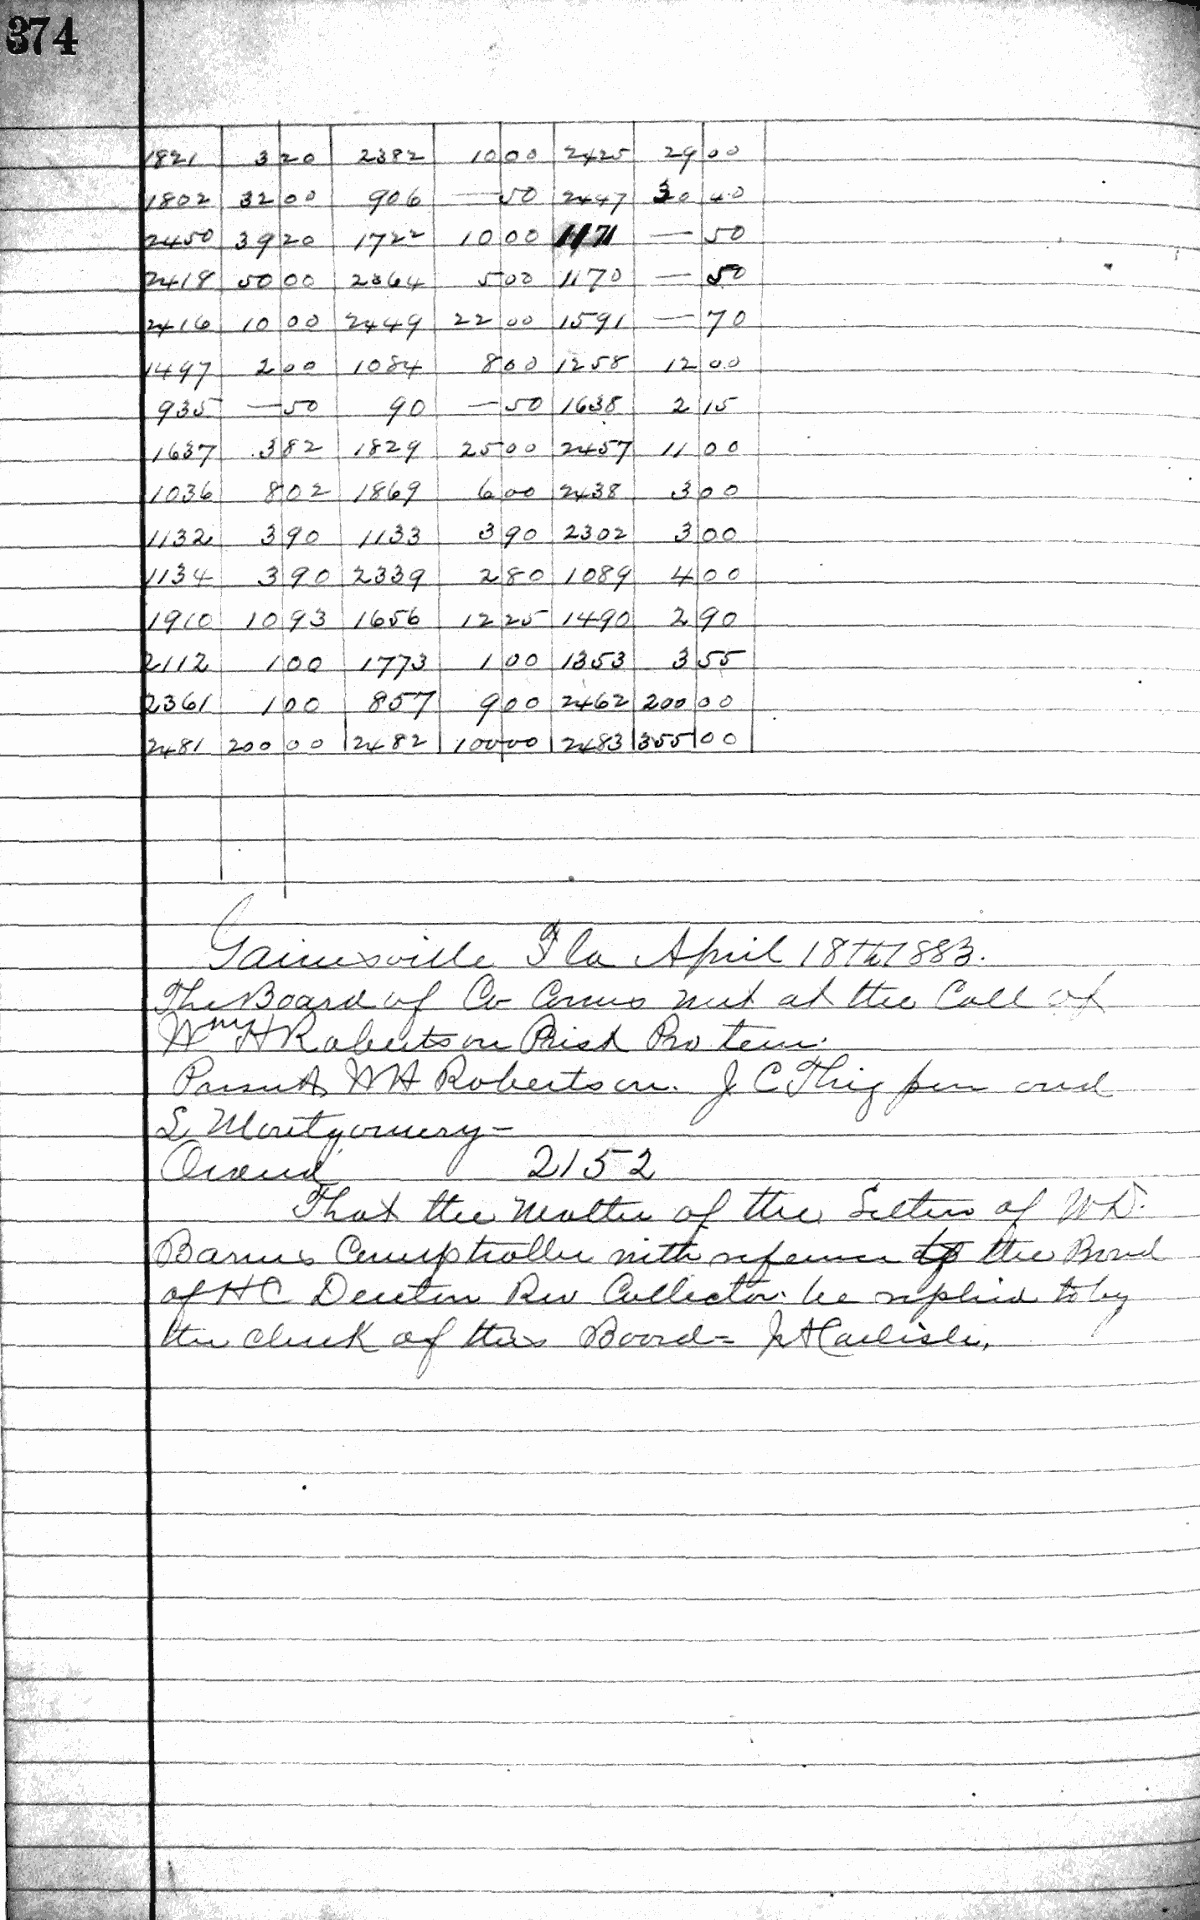 374
1821 3 20 2382 10 00 2425 29 00
1802 32 00 906 — 50 2447 30 40
2450 39 20 1722 10 00 1171 — 50
2418 50 00 2364 5 00 1170 — 50
2416 10 00 2449 22 00 1591 — 70
1497 2 00 1084 8 00 1258 12 00
935 — 50 90 — 50 1638 2 15
1637 3 82 1829 25 00 2457 11 00
1036 8 02 1869 6 00 2438 3 00
1132 3 90 1133 3 90 2302 3 00
1134 3 90 2339 2 80 1089 4 00
1910 10 93 1656 12 25 1490 2 90
2112 1 00 1773 1 00 1353 3 55
2361 1 00 857 9 00 2462 200 00
2481 200 00 2482 100 00 2483 355 00
Gainesville Fla April 18th 1883.
The Board of Co Coms met at the Call of
Wm H Robertson Prest Pro tem.
Present W H Robertson. J C Thigpen and
S Montgomery—
Orderd 2152
That the Matter of the Letters of W D.
Barnes Comptroller with reference to the Bond
of H C Denton Rev Collector. be replied to by
the clerk of this Board = J A Carlisle.